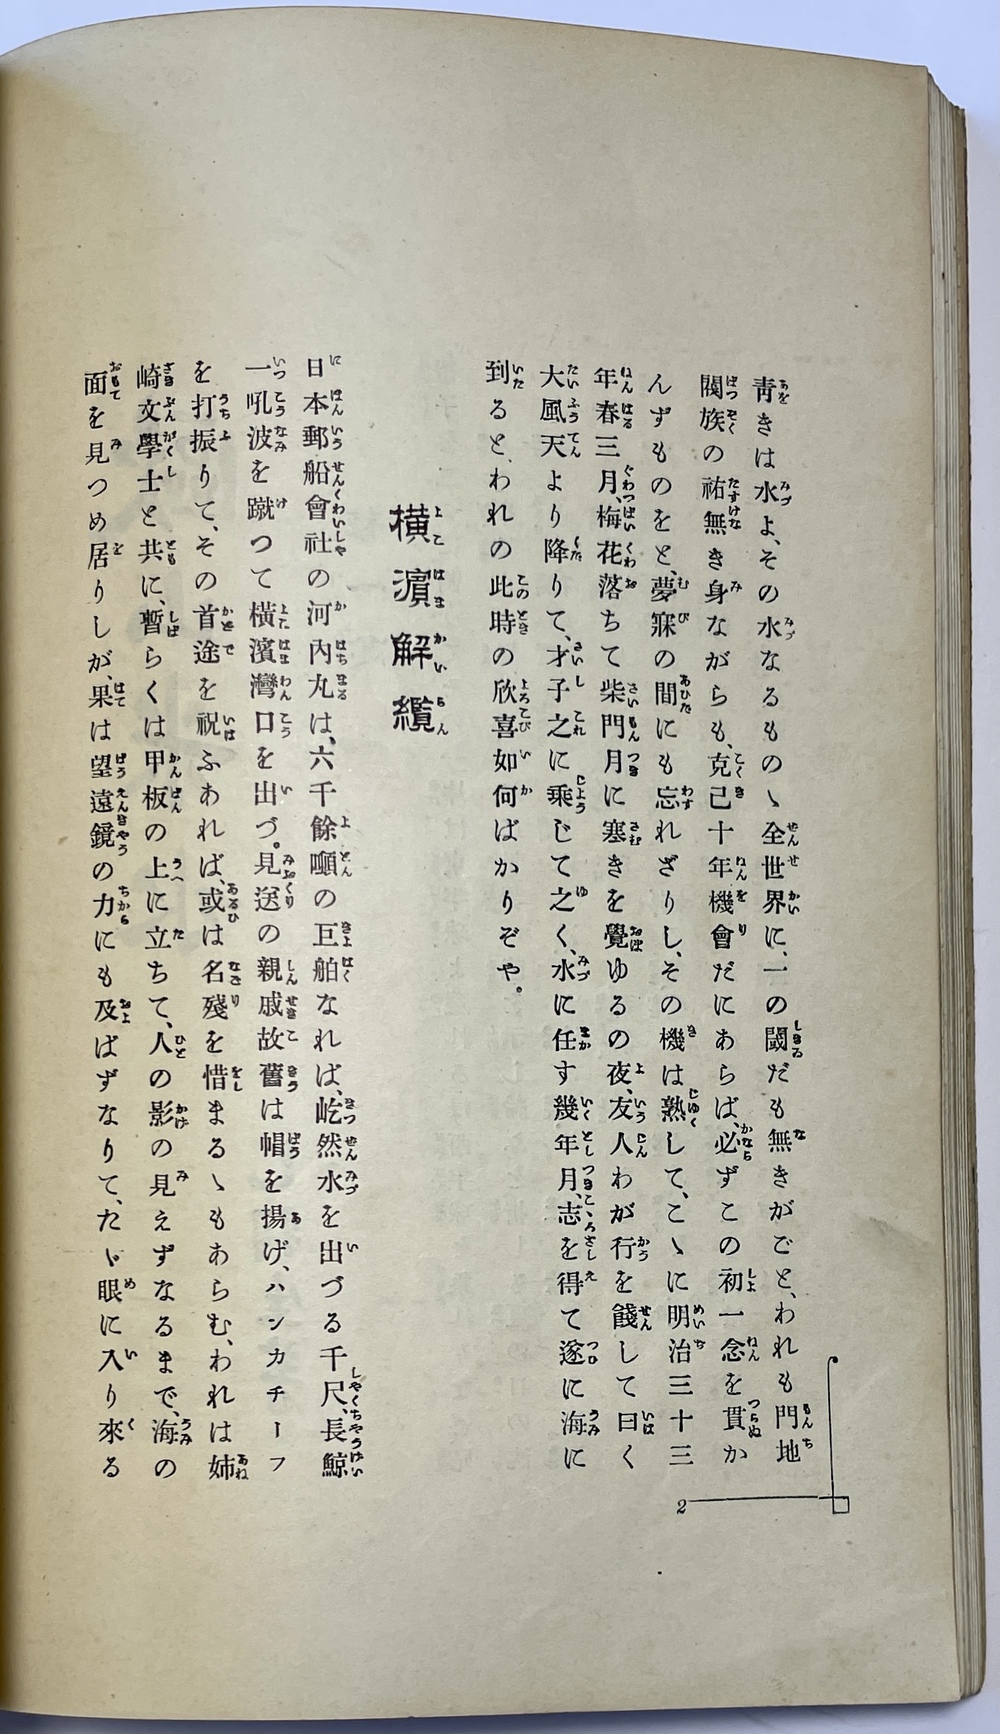 青きは水よ、その水なるものゝ全世界に、一の閾だも無きがごと、われも門地
閥族の祐無き身ながらも、克己十年機會だにあらば、必ずこの初一念を貫か
んずものをと、夢寐の間にも忘れざりし、その機は熟して、こゝに明治三十三
年春三月、梅花落ちて柴門月に寒きを覺ゆるの夜、友人わが行を餞して曰く
大風天より降りて、才子之に乘じて之く、水に任す幾年月、志を得て遂に海に
到ると、われの此時の欣喜如何ばかりぞや。
橫濱解纜
日本郵船會社の河內丸は、六千餘噸の巨舶なれば、屹然水を出づる千尺、長鯨
一吼波を蹴つて橫濱灣口を出づ。見送の親戚故舊は帽を揚げ、ハンカチーフ
を打振りて、その首途を祝ふあれば、或は名殘を惜まるゝもあらむ、われは姉
崎文學士と共に、暫らくは甲板の上に立ちて、人の影の見えずなるまで、海の
面を見つめ居りしが、果は望遠鏡の力にも及ばずなりて、たゞ眼に入り來る
2